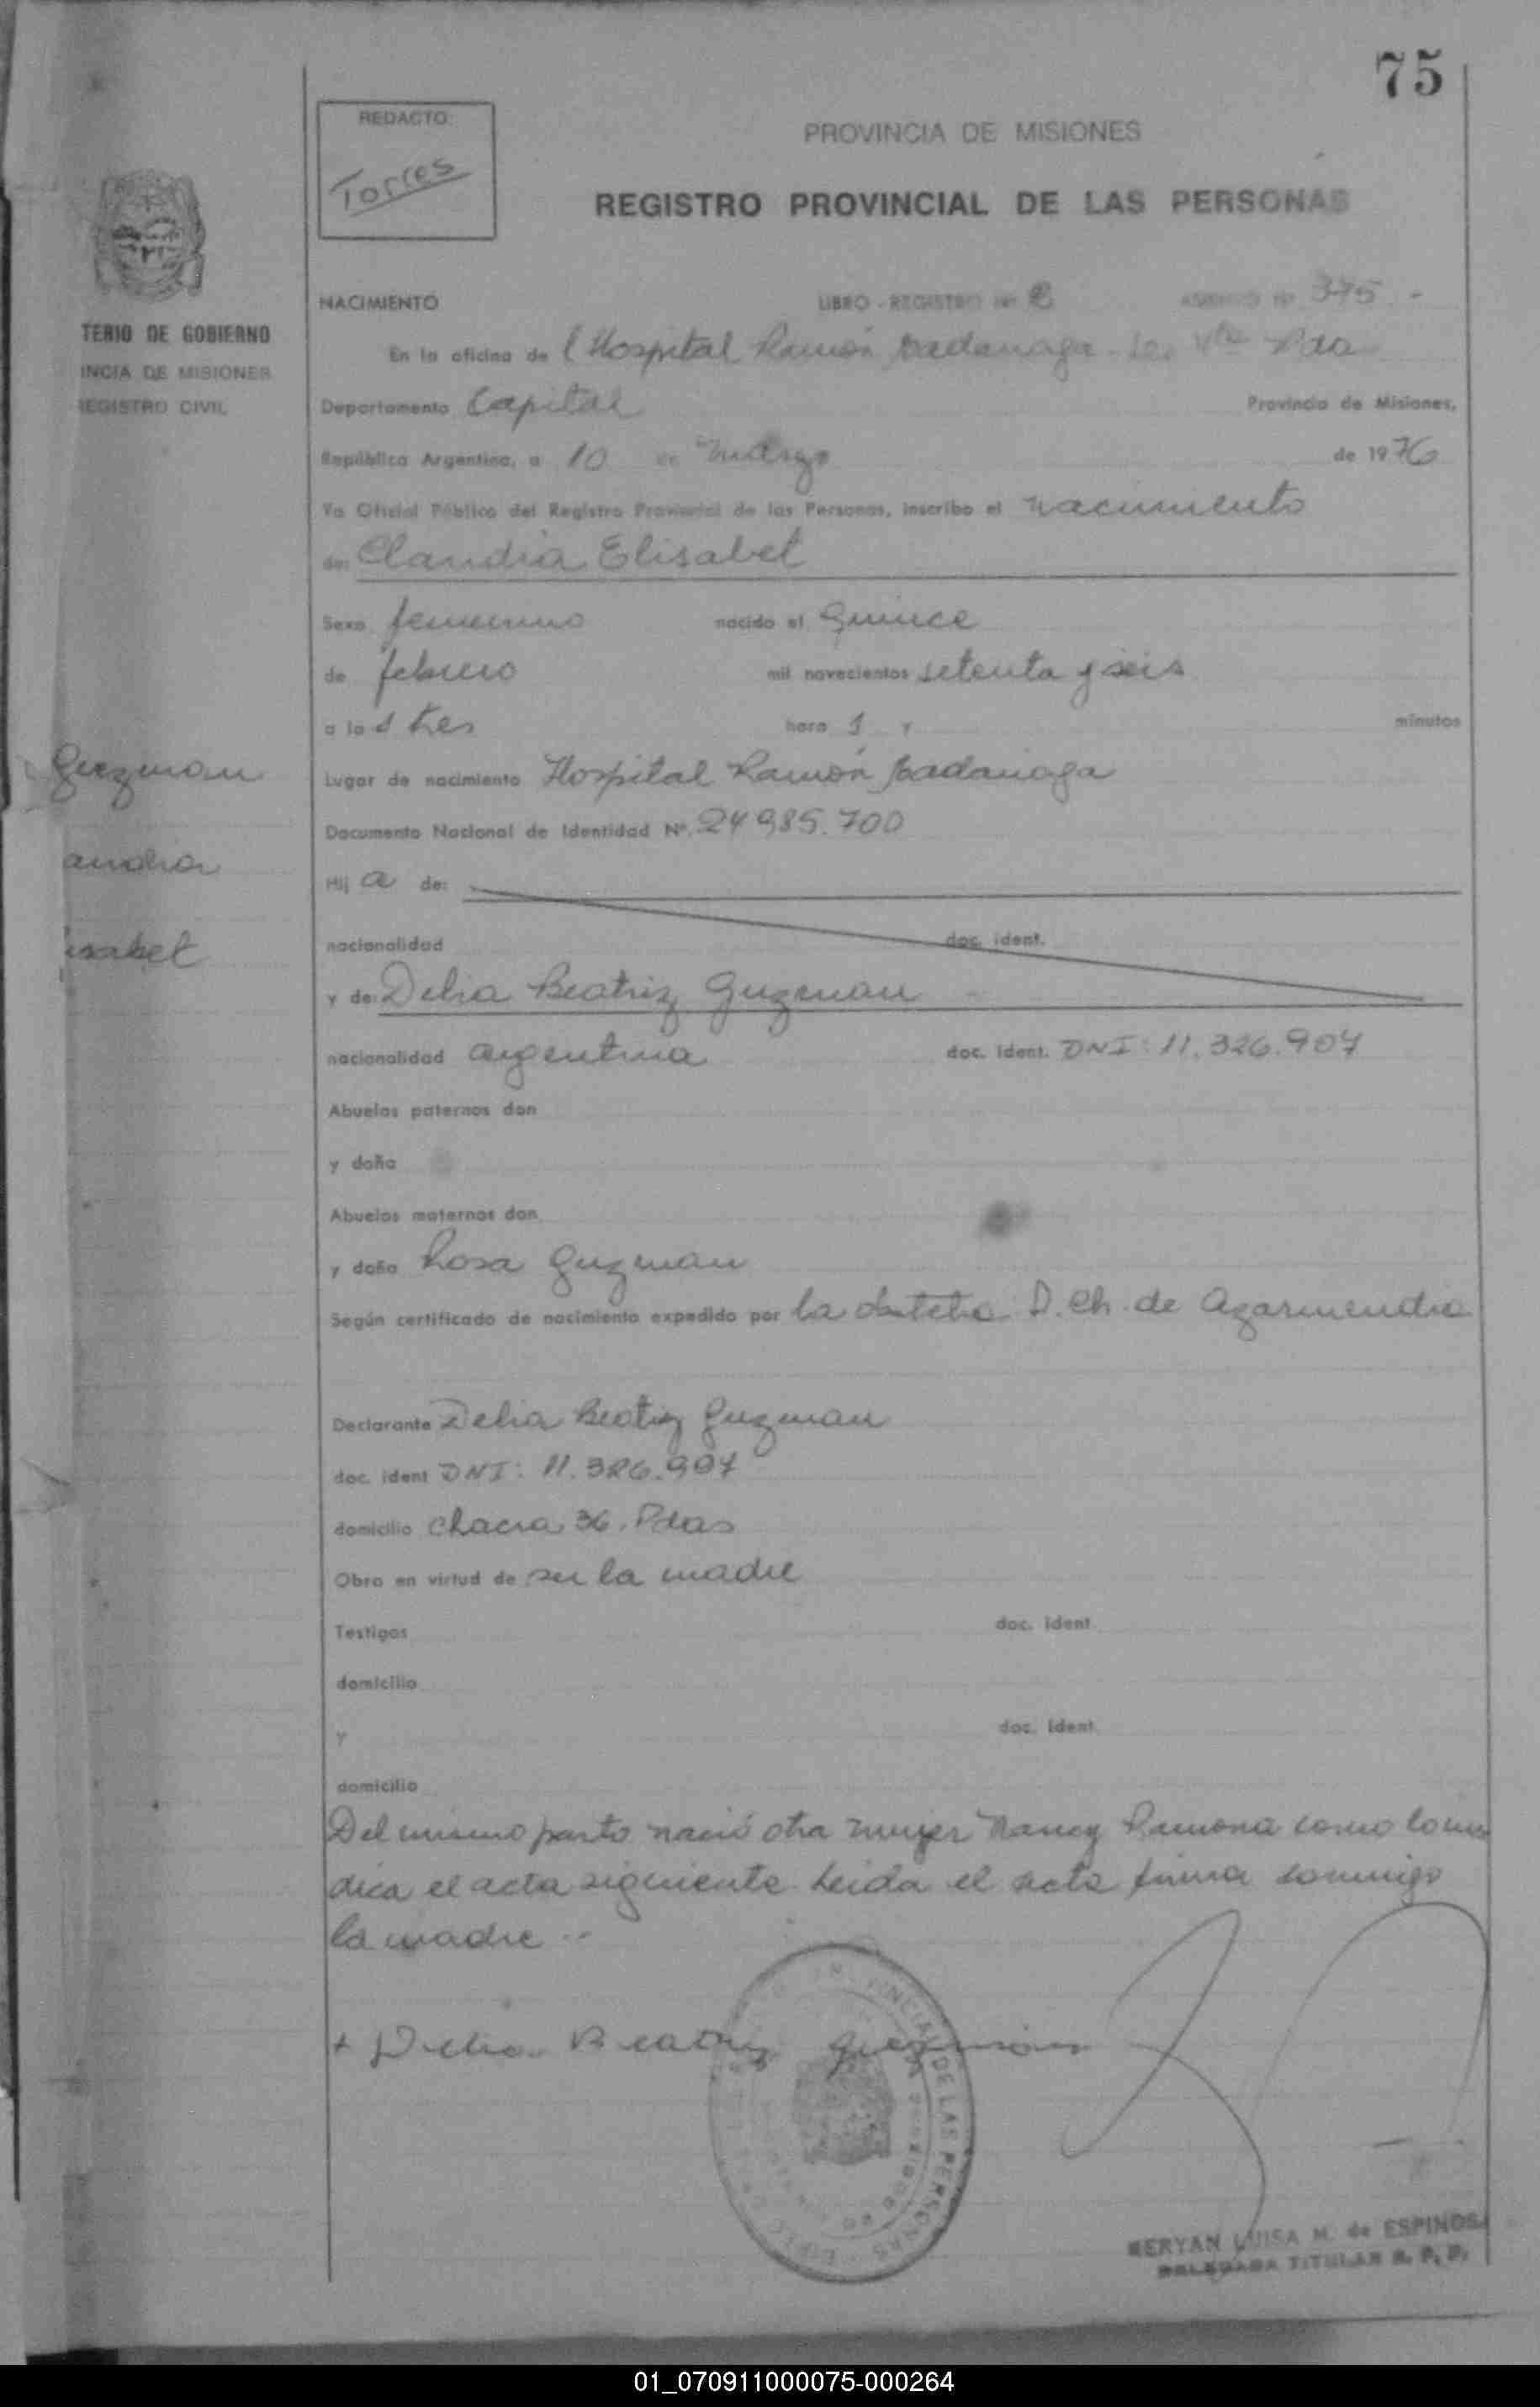 75
REDACTO
Torres
PROVINCIA DE MISIONES
REGISTRO PROVINCIAL DE LAS PERSONAS
TERIO DE GOBIERNO
INCIA DE MISIONES
REGISTRO CIVIL
NACIMIENTO LIBRO - REGISTRO Nº ASIENTO Nº 375 -
En la oficina de l Hospital Ramón Madariaga
Departamento Capital Provincia de Misiones,
República Argentina, a 10 de marzo de 1976
Yo Oficial Público del Registro Provincial de las Personas, inscribo el nacimiento
de: Claudia Elisabet
Sexo femenino nacido el quince
de febrero mil novecientos setenta y seis
a la s tres hora s y minutos
Guzman
Lugar de nacimiento Hospital Ramón Madariaga
Documento Nacional de Identidad Nº 24 985.700
audia
Hij a de:
isabet
nacionalidad doc. ident.
y de: Delia Beatriz Guzman
nacionalidad argentina doc. ident. DNI: 11.326.907
Abuelos paternos don
y doña
Abuelos maternos don
y doña Rosa Guzman
Según certificado de nacimiento expedido por la obstetra D. Ch. de Agarmendia
Declarante Delia Beatriz Guzman
doc. ident DNI: 11.326.907
domicilio chacra 36. Pdas
Obra en virtud de ser la madre
Testigos doc. ident.
domicilio
y doc. ident.
domicilio
Del mismo parto nació otra mujer Nancy Ramona como lo in
dica el acta siguiente leida el acta firma conmigo
la madre --
+ Delia Beatriz Guzman
DE LAS PERSONAS
MERYAN LUISA M. de ESPINOSA
DELEGADA TITULAR R. P. P.
01_070911000075-000264